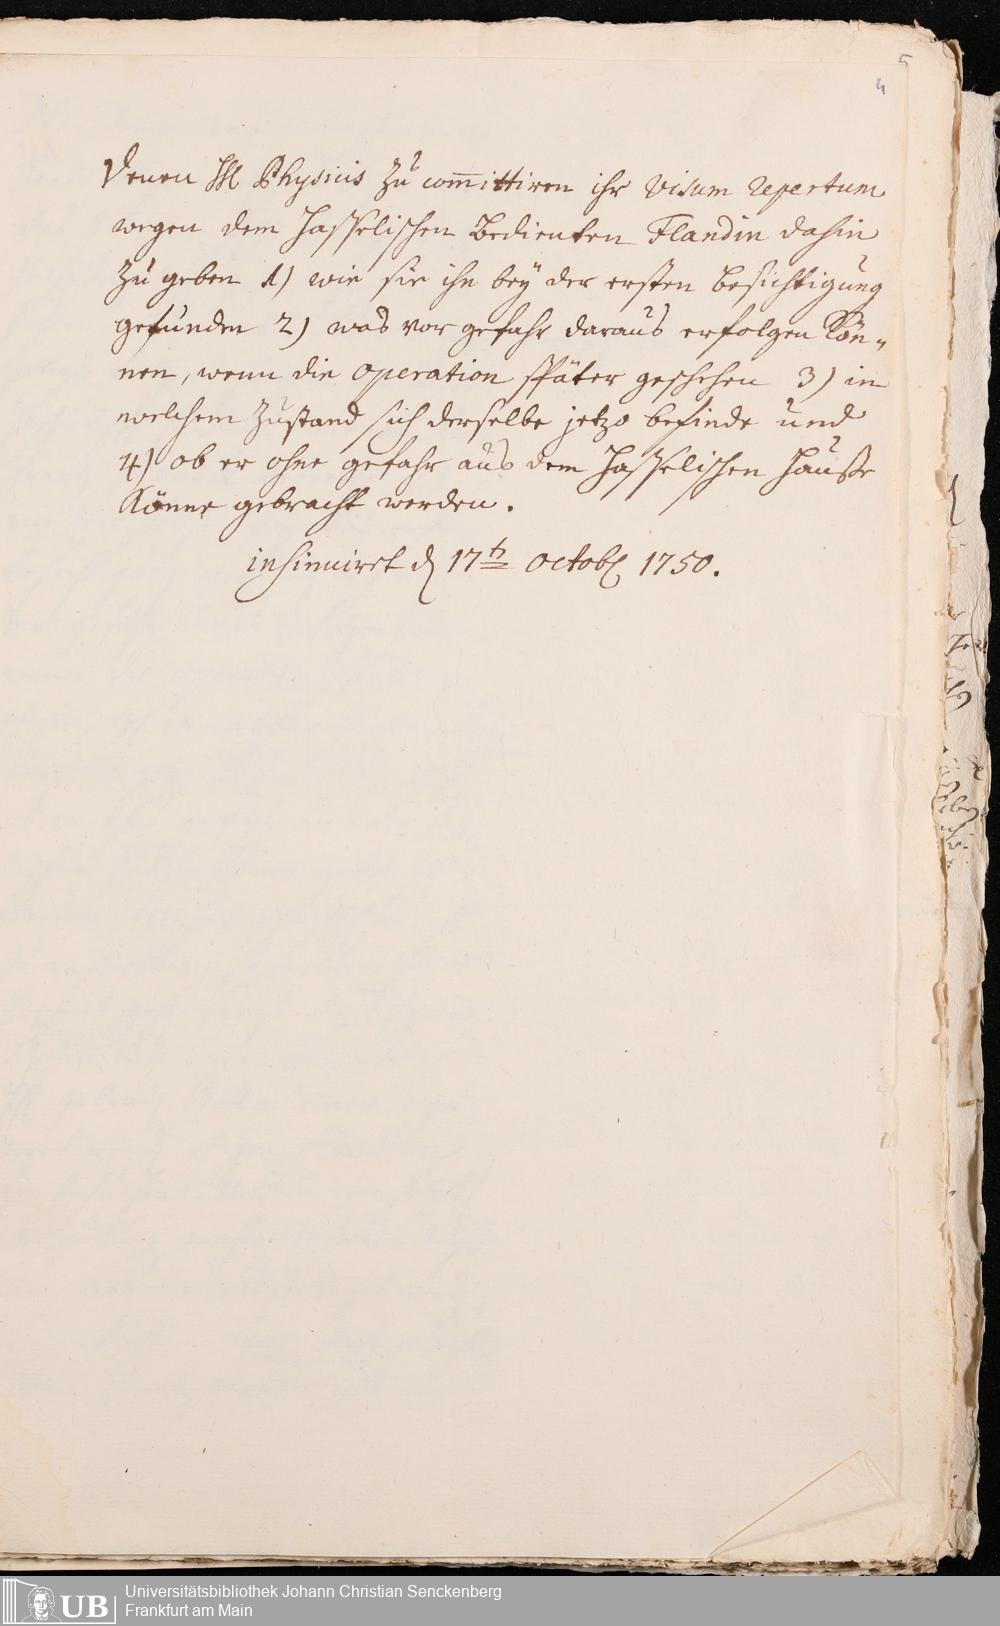 5
4
Denen HH Physicis zu com̅ittiren ihr Visum repertum
wegen dem Hasselischen Bedienten Flandin dahin
zu geben 1) wie sie ihn bey der ersten Besichtigung
gefunden 2) was vor gefahr daraus erfolgen kön„
nen, wenn die operation später geschehen 3) in
welchem Zustand sich derselbe jetzo befinde und
4) ob er ohne gefahr aus dem Hasselischen Hauße
könne gebracht werden.
insinuiret d 17ten Octobr 1750.
UB
Universitätsbibliothek Johann Christian Senckenberg
Frankfurt am Main